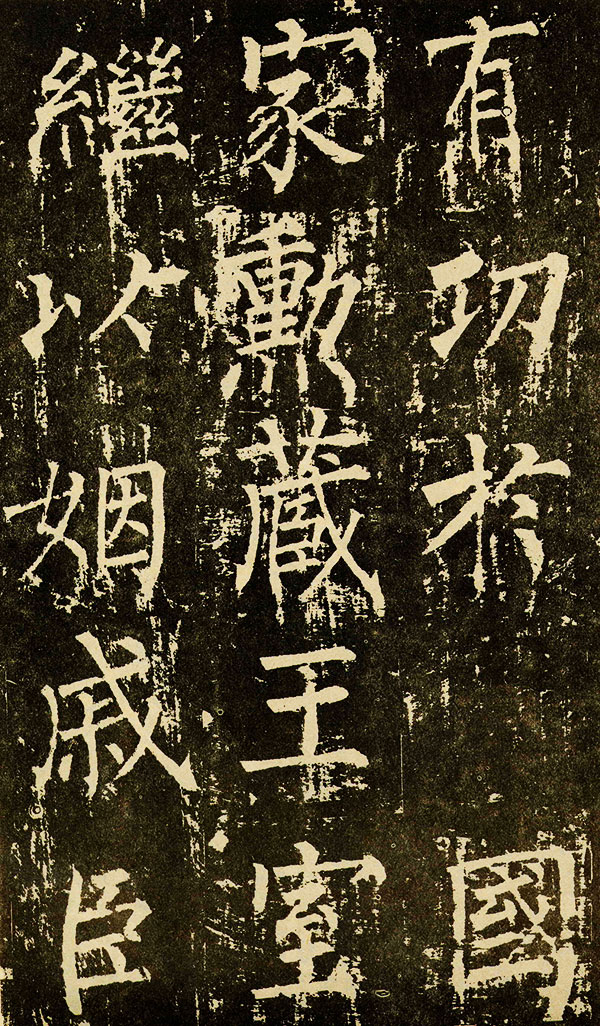 有功於國
家勲蔵王室
継以姻戚臣